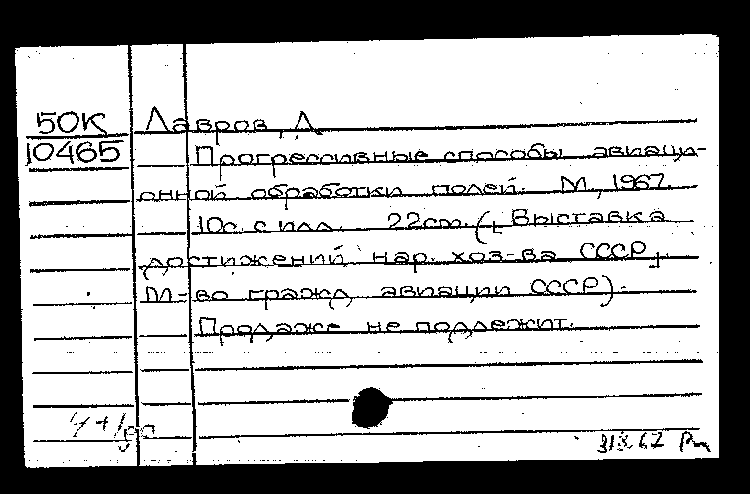 50К Лавров, Д
10465
Прогрессивные способы авиаци-
онной обработки полей. М., 1967.
10с. с илл. 22см. (Выставка
достижений нар. хоз-ва СССР.
М-во гражд. авиации СССР).
Продаже не подлежит.